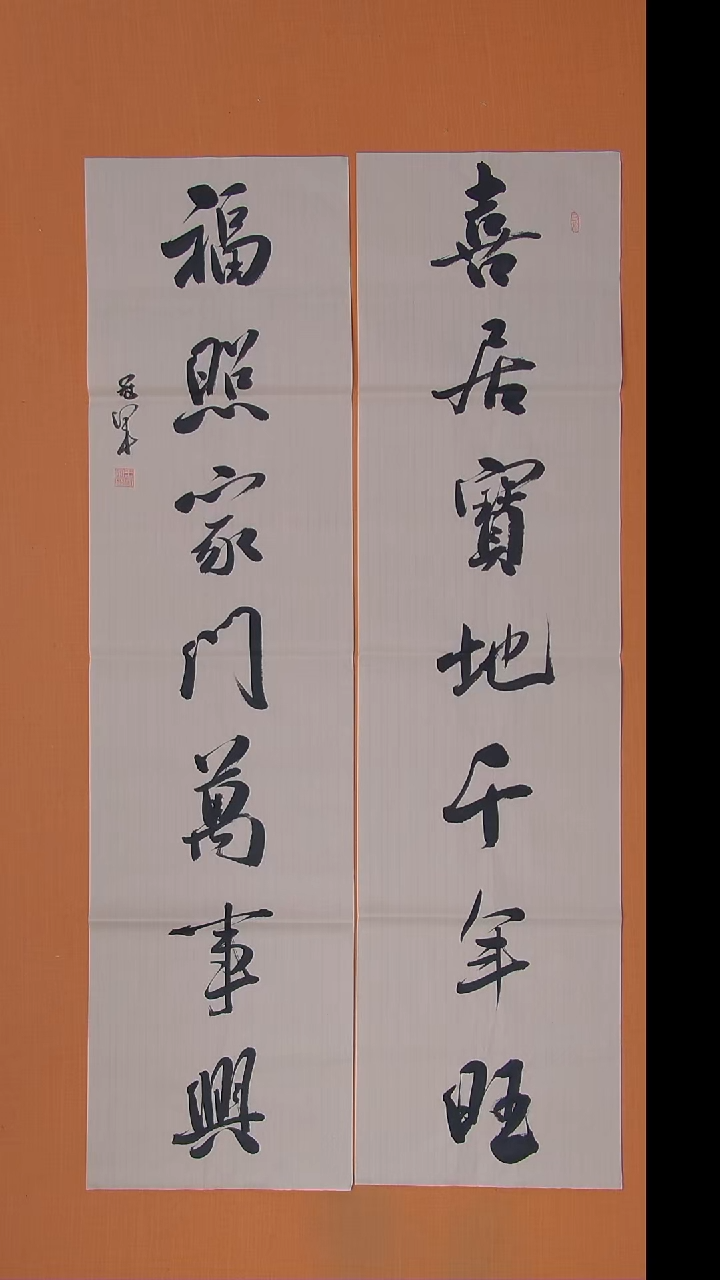 喜居寳地千年旺
福照家门萬事興